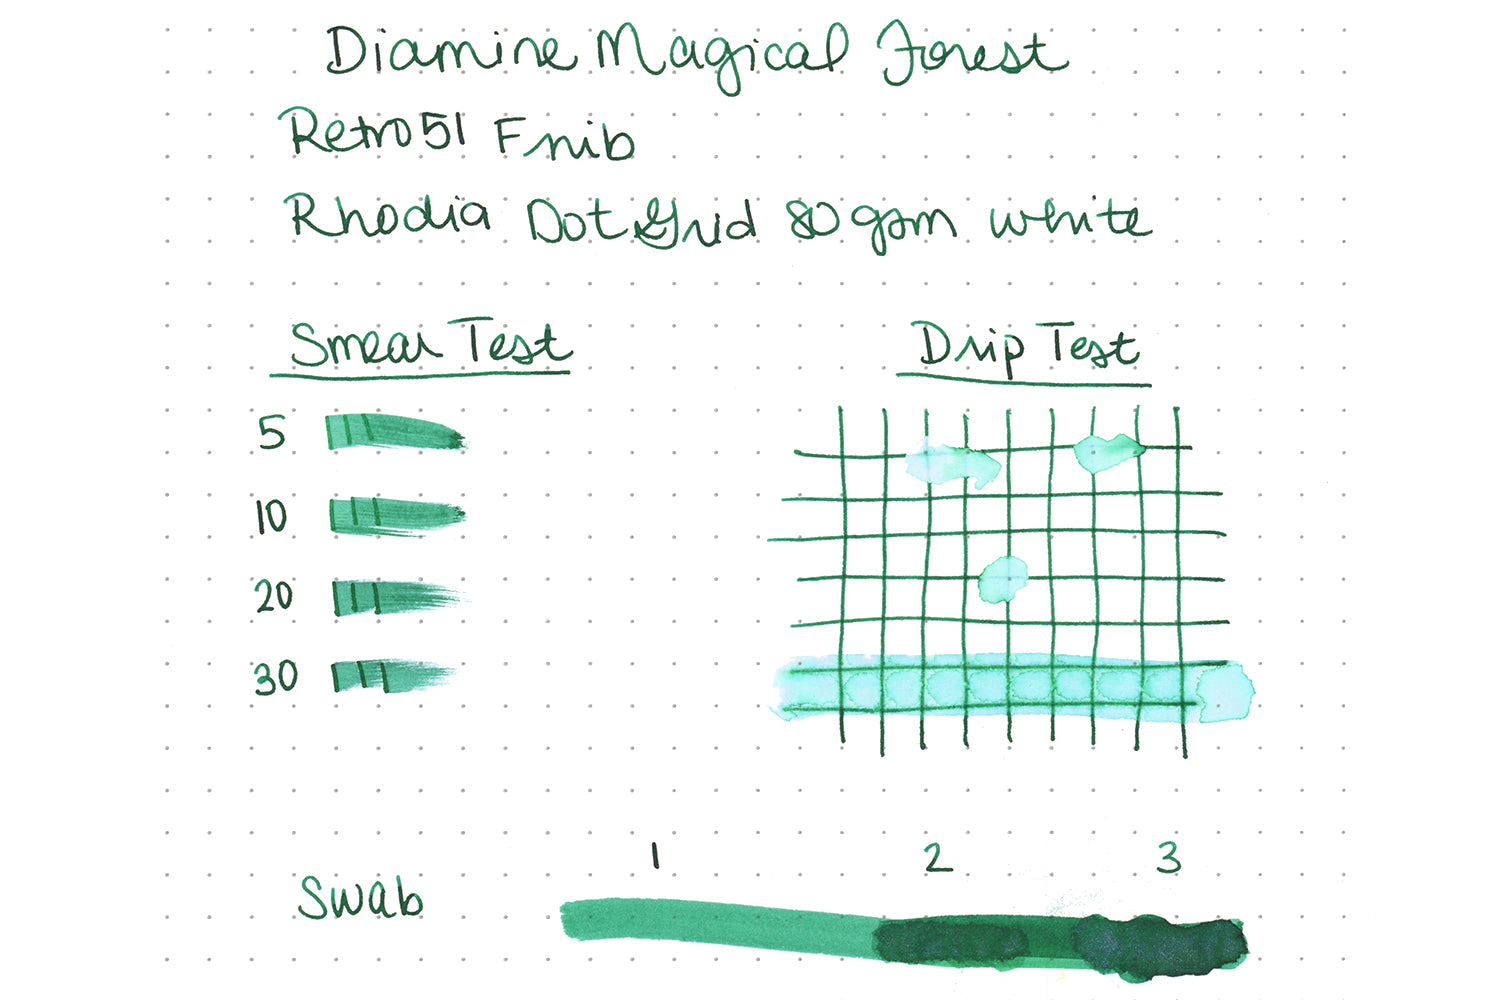 Diamine Magical Forest
Retro51 F nib
Rhodia Dot Grid 80 gsm white
Smear Test
5
10
20
30
Drip Test
1 2 3
Swab